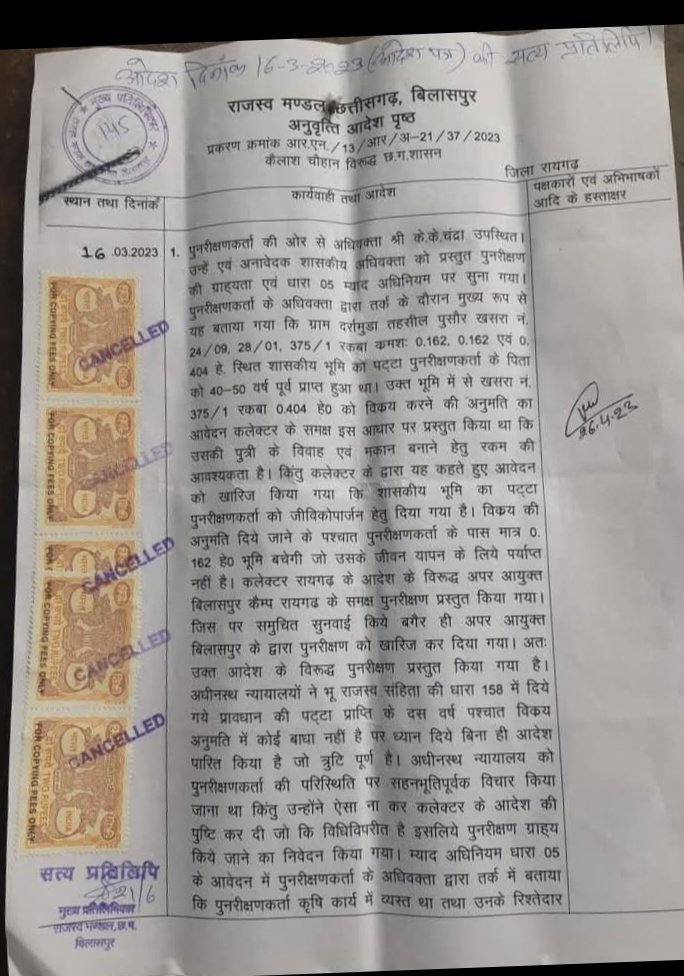 आदेश दिनाँक 16-3-2023 (आदेश पत्र) की सत्य प्रतिलिपि।
राजस्व मण्डल छत्तीसगढ़, बिलासपुर
अनुवृत्ति आदेश पृष्ठ
प्रकरण क्रमांक आर.एन./13/आर/अ-21/37/2023
कैलाश चौहान विरूद्ध छ.ग.शासन
जिला रायगढ़
मुख्य प्रतिलिपिकार
145
स्थान तथा दिनांक
कार्यवाही तथा आदेश
पक्षकारों एवं अभिभाषकों
आदि के हस्ताक्षर
16.03.2023
1. पुनरीक्षणकर्ता की ओर से अधिवक्ता श्री के.के.चंद्रा उपस्थित।
उन्हें एवं अनावेदक शासकीय अधिवक्ता को प्रस्तुत पुनरीक्षण
की ग्राह्यता एवं धारा 05 म्याद अधिनियम पर सुना गया।
पुनरीक्षणकर्ता के अधिवक्ता द्वारा तर्क के दौरान मुख्य रूप से
यह बताया गया कि ग्राम दर्रामुडा तहसील पुसौर खसरा नं.
24/09, 28/01, 375/1 रकबा कमशः 0.162, 0.162 एवं 0.
404 हे. स्थित शासकीय भूमि का पट्टा पुनरीक्षणकर्ता के पिता
को 40-50 वर्ष पूर्व प्राप्त हुआ था। उक्त भूमि में से खसरा नं.
375/1 रकबा 0.404 हे0 को विक्रय करने की अनुमति का
आवेदन कलेक्टर के समक्ष इस आधार पर प्रस्तुत किया था कि
उसकी पुत्री के विवाह एवं मकान बनाने हेतु रकम की
आवश्यकता है। किंतु कलेक्टर के द्वारा यह कहते हुए आवेदन
को खारिज किया गया कि शासकीय भूमि का पट्टा
पुनरीक्षणकर्ता को जीविकोपार्जन हेतु दिया गया है। विक्रय की
अनुमति दिये जाने के पश्चात पुनरीक्षणकर्ता के पास मात्र 0.
162 हे0 भूमि बचेगी जो उसके जीवन यापन के लिये पर्याप्त
नहीं है। कलेक्टर रायगढ के आदेश के विरूद्ध अपर आयुक्त
बिलासपुर कैम्प रायगढ के समक्ष पुनरीक्षण प्रस्तुत किया गया।
जिस पर समुचित सुनवाई किये बगैर ही अपर आयुक्त
बिलासपुर के द्वारा पुनरीक्षण को खारिज कर दिया गया। अतः
उक्त आदेश के विरूद्ध पुनरीक्षण प्रस्तुत किया गया है।
अधीनस्थ न्यायालयों ने भू राजस्व संहिता की धारा 158 में दिये
गये प्रावधान की पट्टा प्राप्ति के दस वर्ष पश्चात विक्रय
अनुमति में कोई बाधा नहीं है पर ध्यान दिये बिना ही आदेश
पारित किया है जो त्रुटि पूर्ण है। अधीनस्थ न्यायालय को
पुनरीक्षणकर्ता की परिस्थिति पर सहनभूतिपूर्वक विचार किया
जाना था किंतु उन्होंने ऐसा ना कर कलेक्टर के आदेश की
पुष्टि कर दी जो कि विधिविपरीत है इसलिये पुनरीक्षण ग्राह्य
किये जाने का निवेदन किया गया। म्याद अधिनियम धारा 05
के आवेदन में पुनरीक्षणकर्ता के अधिवक्ता द्वारा तर्क में बताया
कि पुनरीक्षणकर्ता कृषि कार्य में व्यस्त था तथा उनके रिश्तेदार
26.4.23
FOR COPYING FEES ONLY
TWO RUPEES
CANCELLED
FOR COPYING FEES ONLY
CANCELLED
CANCELLED
FOR COPYING FEES ONLY
TWO RUPEES
CANCELLED
FOR COPYING FEES ONLY
TWO RUPEES
CANCELLED
सत्य प्रतिलिपि
21/6
मुख्य प्रतिलिपिकार
राजस्व मण्डल, छ.ग.
बिलासपुर